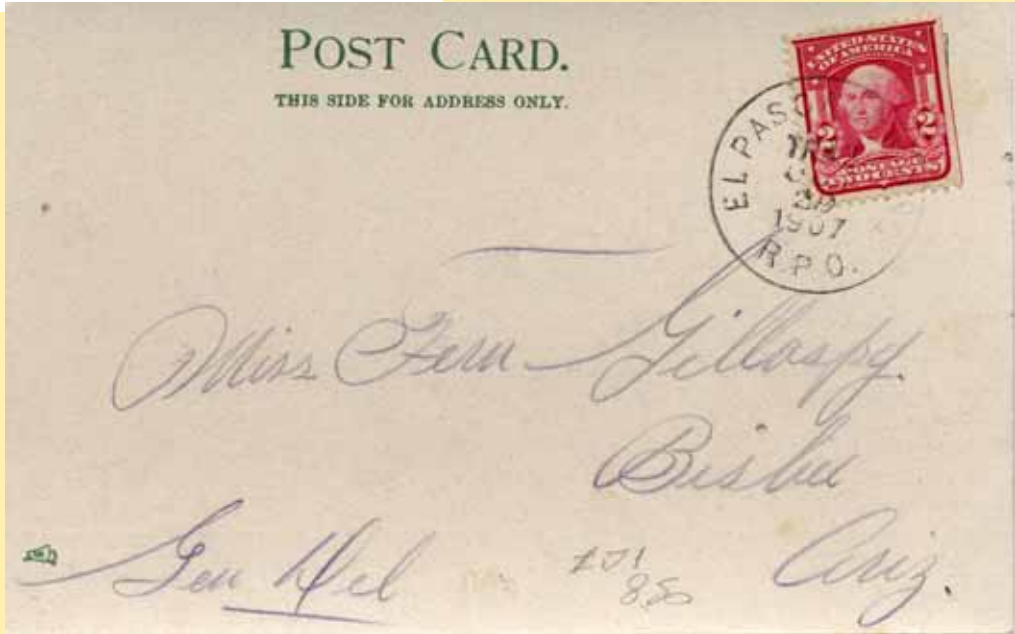 POST CARD.
THIS SIDE FOR ADDRESS ONLY.
UNITED STATES
OF AMERICA
2 2
POSTAGE
TWO CENTS
EL PASO
TR
20
1907
R.P.O.
Miss Fern Gillaspy
Bisbee
Ariz.
Gen Del
850